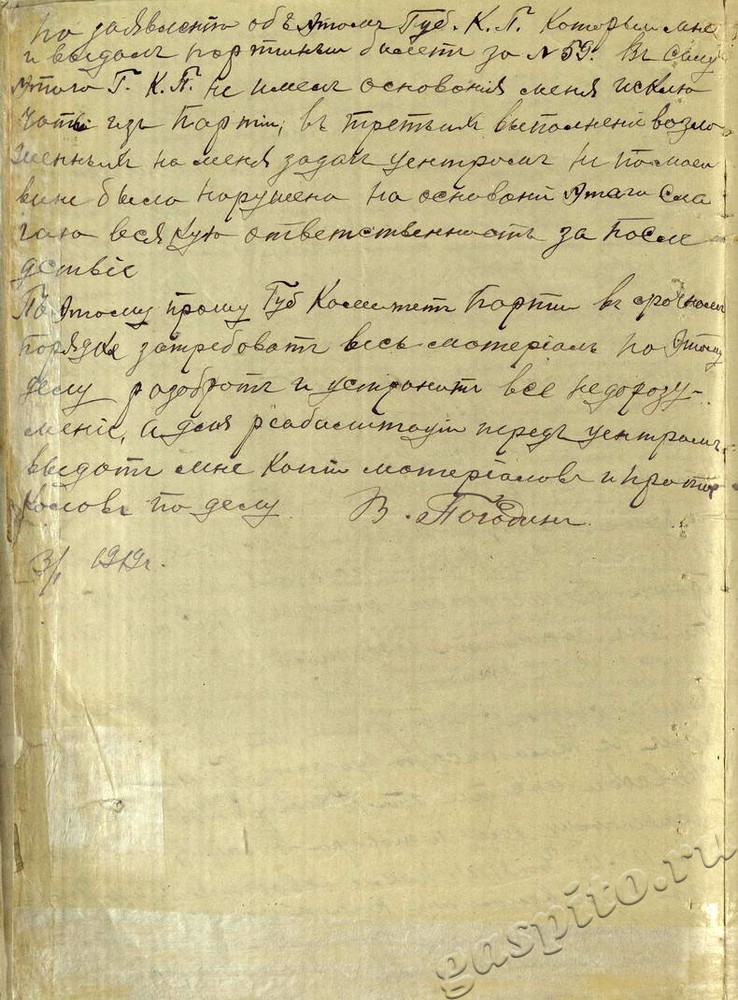 по заявлению объ этомъ Губ. К. П. Которым мне
и выдалъ партиный билетъ за № 59. Въ силу
этого Г. К. П. не имелъ основания меня исклю
чать изъ Партіи, въ третьихъ выполнені возло
женныхъ на меня задач центромъ не по моей
вине было нарушено на основані этаго сла
гаю всякую ответственность за после
дствіе
По этому прошу Губ Комитетъ Партіи въ срочномъ
порядке затребовать весь матеріалъ по этому
делу разобрать и устранить все недоразу-
меніе, а для реабилитаціи передъ центромъ
выдать мне копіи матеріаловъ и прото
коловъ по делу В. Погодинъ.
3/I 1919г.
gaspito.ru